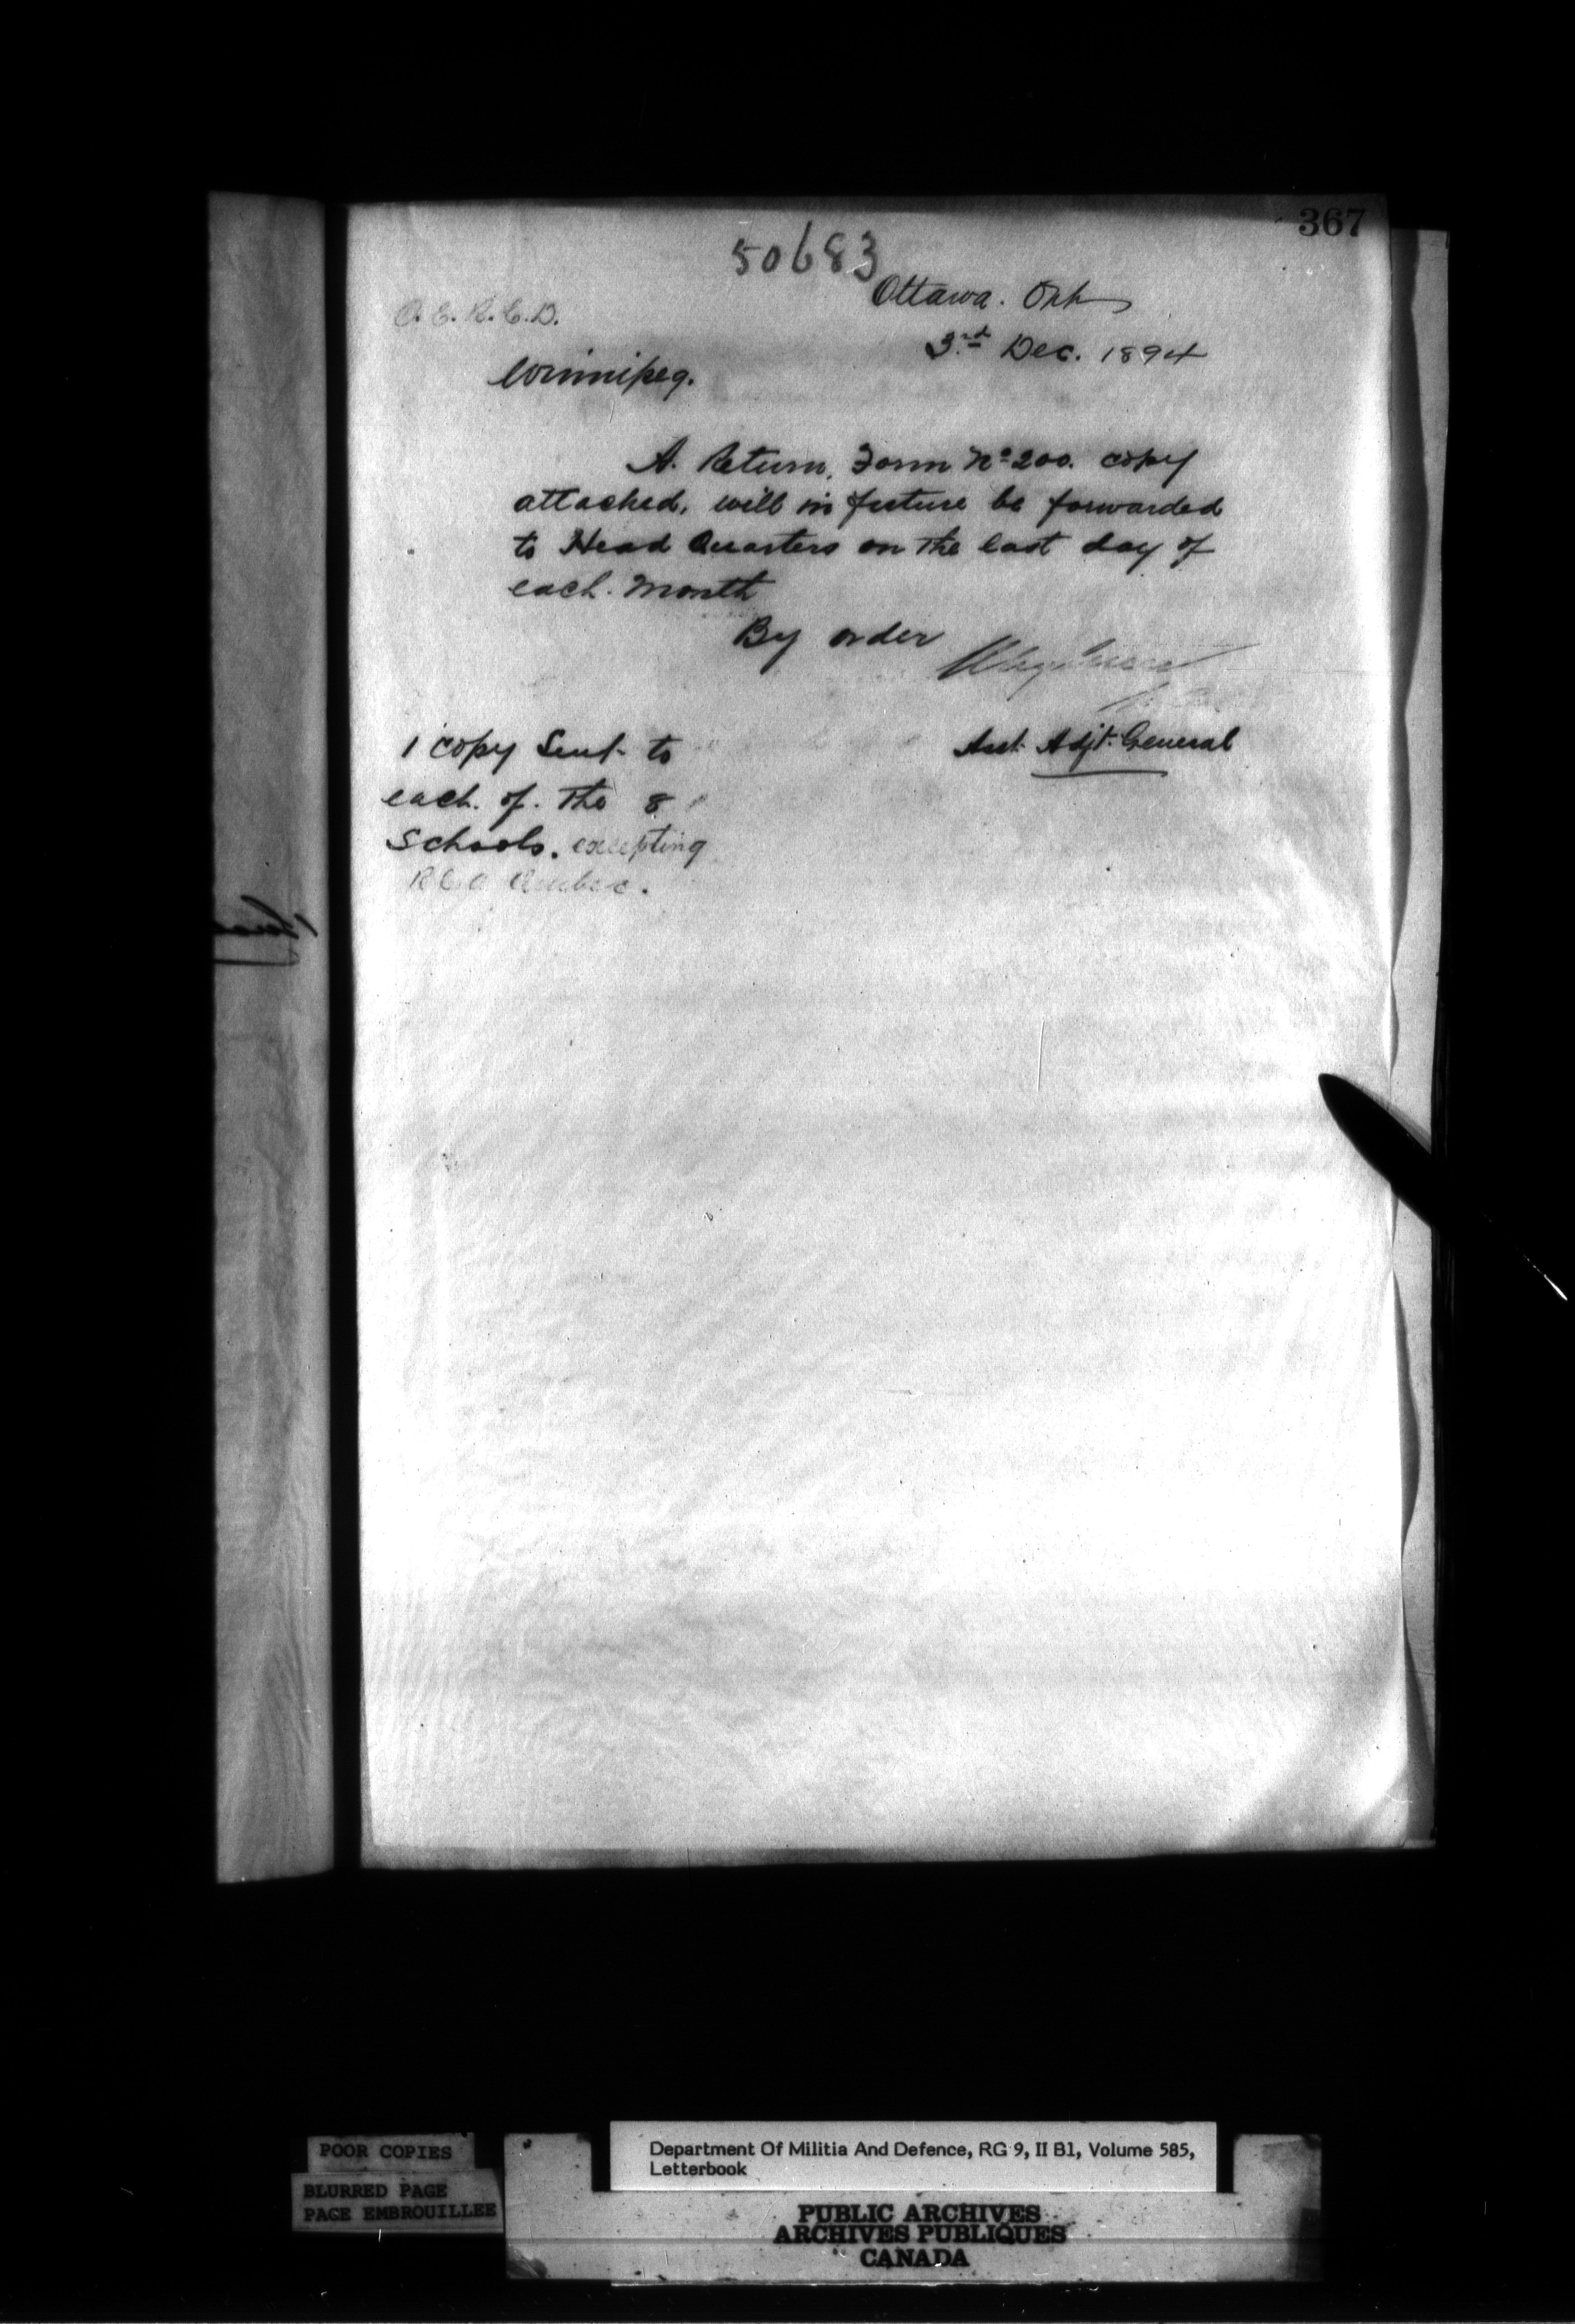 367
50683
Ottawa. Ont
3rd Dec. 1894
Winnipeg.
A. Return, Form No 200. copy
attached, will in future be forwarded
to Head Quarters on the last day of
each. Month
By order
Asst. Adjt. General
1 copy Sent to
each. of. the 8
Schools. excepting
Quebec.
POOR COPIES
BLURRED PAGE
PAGE EMBROUILLEE
Department Of Militia And Defence, RG 9, II B1, Volume 585,
Letterbook
PUBLIC ARCHIVES
ARCHIVES PUBLIQUES
CANADA